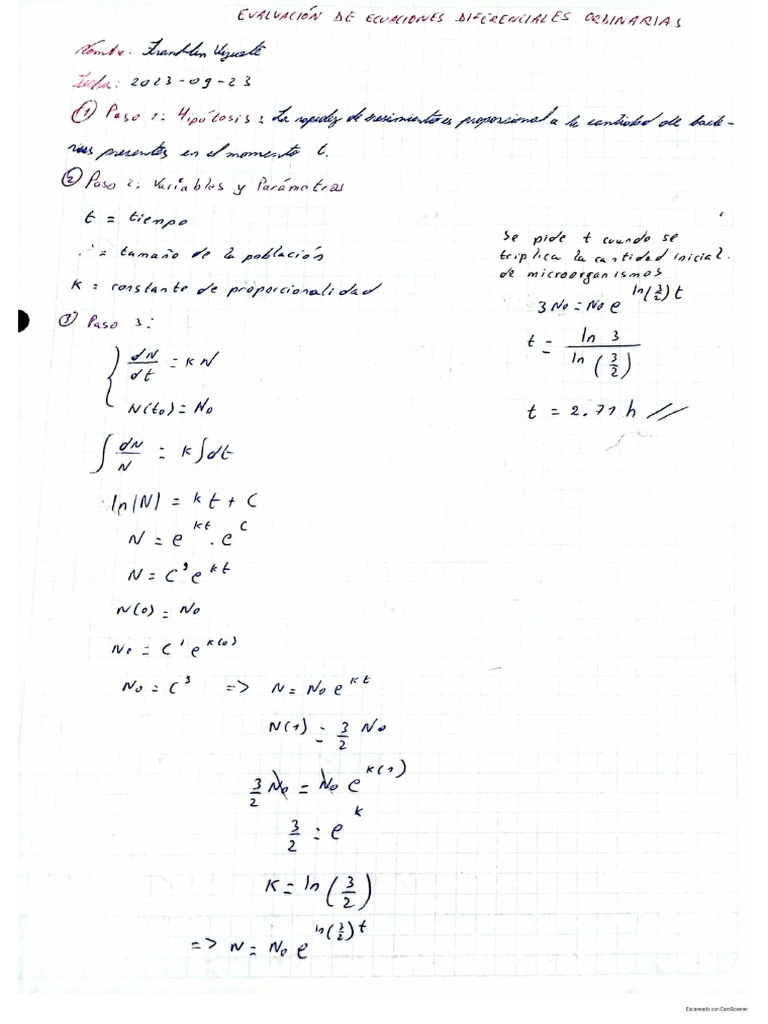 EVALUACIÓN DE ECUACIONES DIFERENCIALES ORDINARIAS
Nombre: Franklin
Fecha: 2023-09-23
① Paso 1: Hipótesis: La rapidez de crecimiento es proporcional a la cantidad de bacte-
rias presentes en el momento t.
② Paso 2: Variables y Parámetros
t = tiempo
= tamaño de la población
K = constante de proporcionalidad
③ Paso 3:
{ dN/dt = K N
N(t₀) = N₀
∫ dN/N = K∫dt
ln|N| = Kt + C
N = e^{Kt} · e^{C}
N = C' e^{Kt}
N(0) = N₀
N₀ = C' e^{K(0)}
N₀ = C' => N = N₀ e^{Kt}
N(1) = 3/2 N₀
3/2 N₀ = N₀ e^{K(1)}
3/2 = e^{K}
K = ln(3/2)
=> N = N₀ e^{ln(3/2)t}
Se pide t cuando se
triplica la cantidad inicial.
de microorganismos
3N₀ = N₀ e^{ln(3/2)t}
t = ln 3 / ln(3/2)
t = 2.71 h //
Escaneado con CamScanner